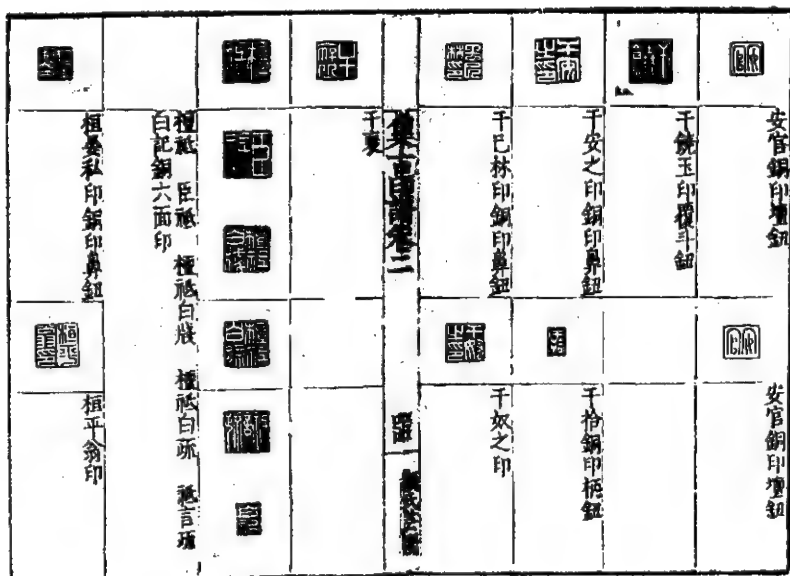 安官銅印壇鈕
安官銅印壇鈕
干饒玉印覆斗鈕
干安之印銅印鼻鈕
干拾銅印柄鈕
干巳林印銅印鼻鈕
干奴之印
集古印譜卷二
干夏
檀祗 臣祗 檀祗白牋 檀祗白疏 祗言疏
白記銅六面印
桓晏私印銅印鼻鈕
桓平翁印